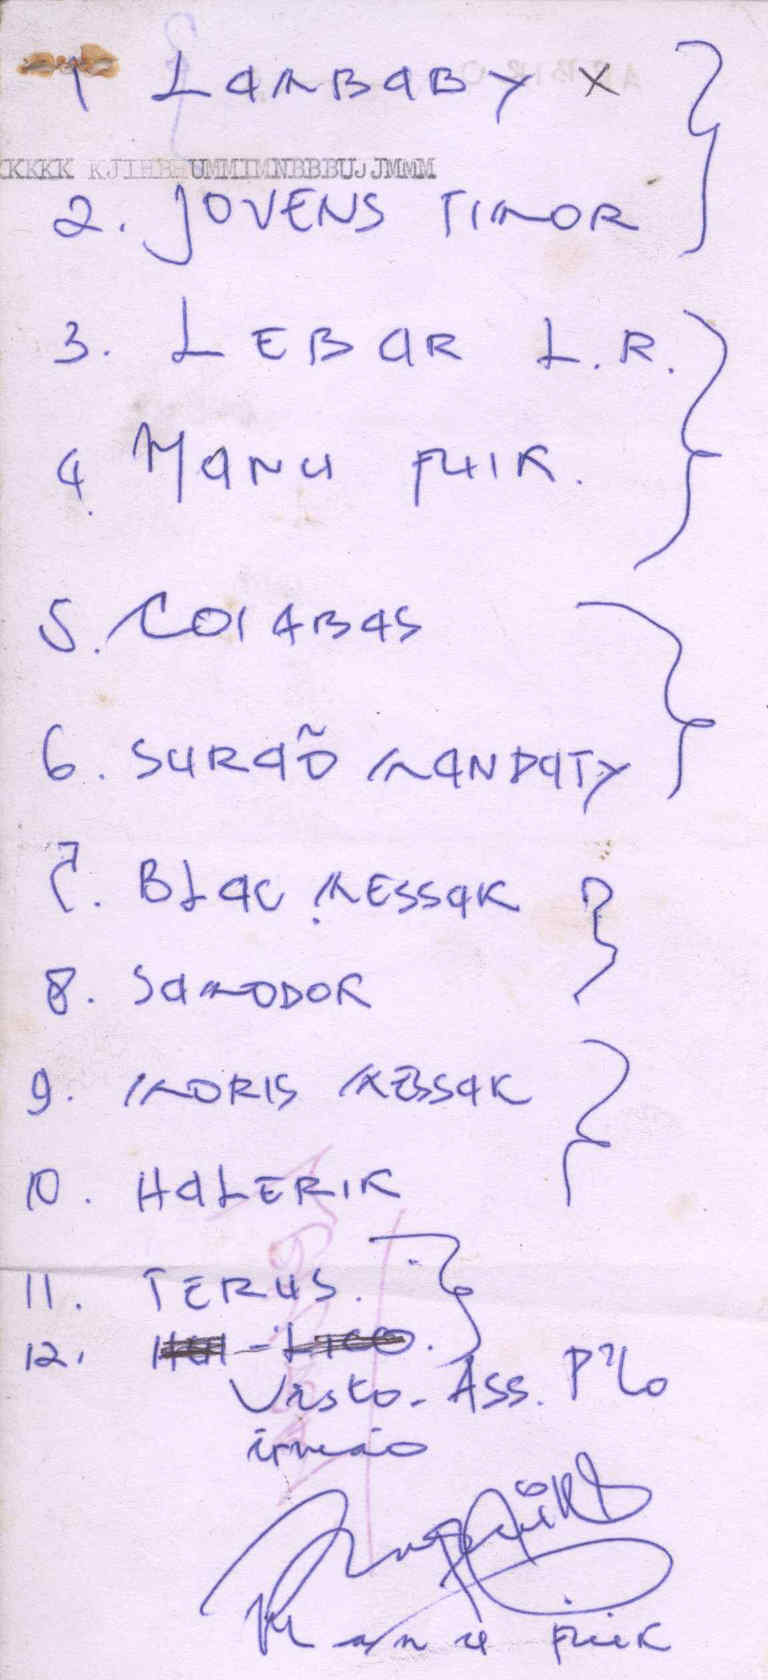 1 LAMBABY X
KKKK KJIHBHUMMIMNBBBUJJMMM
2. JOVENS TIMOR
3. LEBAR L.R.
4. MANU FUIK.
5. COIABAS
6. SURÃO MANDATY
7. BLAC MESSAK
8. SAMODOR
9. MORIS MESSAK
10. HALERIK
11. TERUS.
12.
Visto. Ass. Plo
irmão
Manu fuik